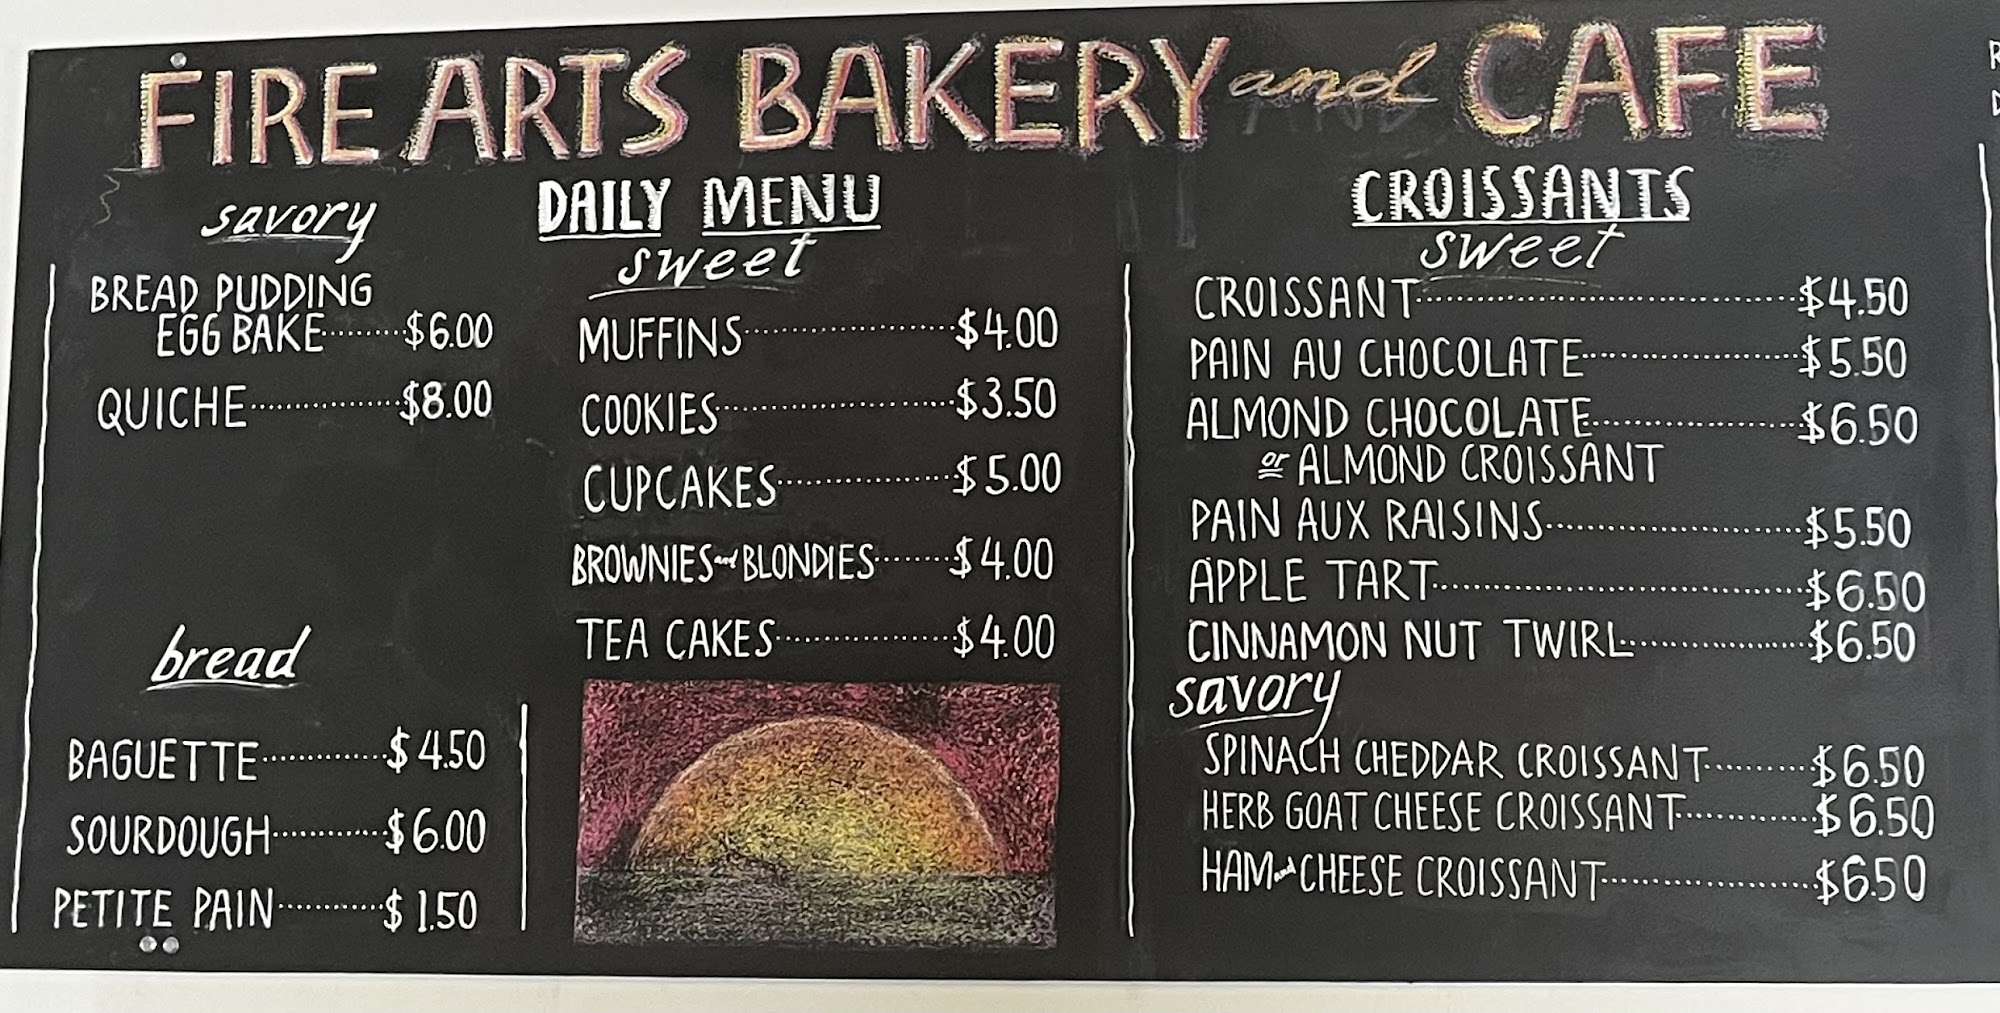 FIRE ARTS BAKERY and CAFE
DAILY MENU
savory
BREAD PUDDING
EGG BAKE $6.00
QUICHE $8.00
bread
BAGUETTE $4.50
SOURDOUGH $6.00
PETITE PAIN $1.50
sweet
MUFFINS $4.00
COOKIES $3.50
CUPCAKES $5.00
BROWNIES and BLONDIES $4.00
TEA CAKES $4.00
CROISSANTS
sweet
CROISSANT $4.50
PAIN AU CHOCOLATE $5.50
ALMOND CHOCOLATE $6.50
or ALMOND CROISSANT
PAIN AUX RAISINS $5.50
APPLE TART $6.50
CINNAMON NUT TWIRL $6.50
savory
SPINACH CHEDDAR CROISSANT $6.50
HERB GOAT CHEESE CROISSANT $6.50
HAM and CHEESE CROISSANT $6.50